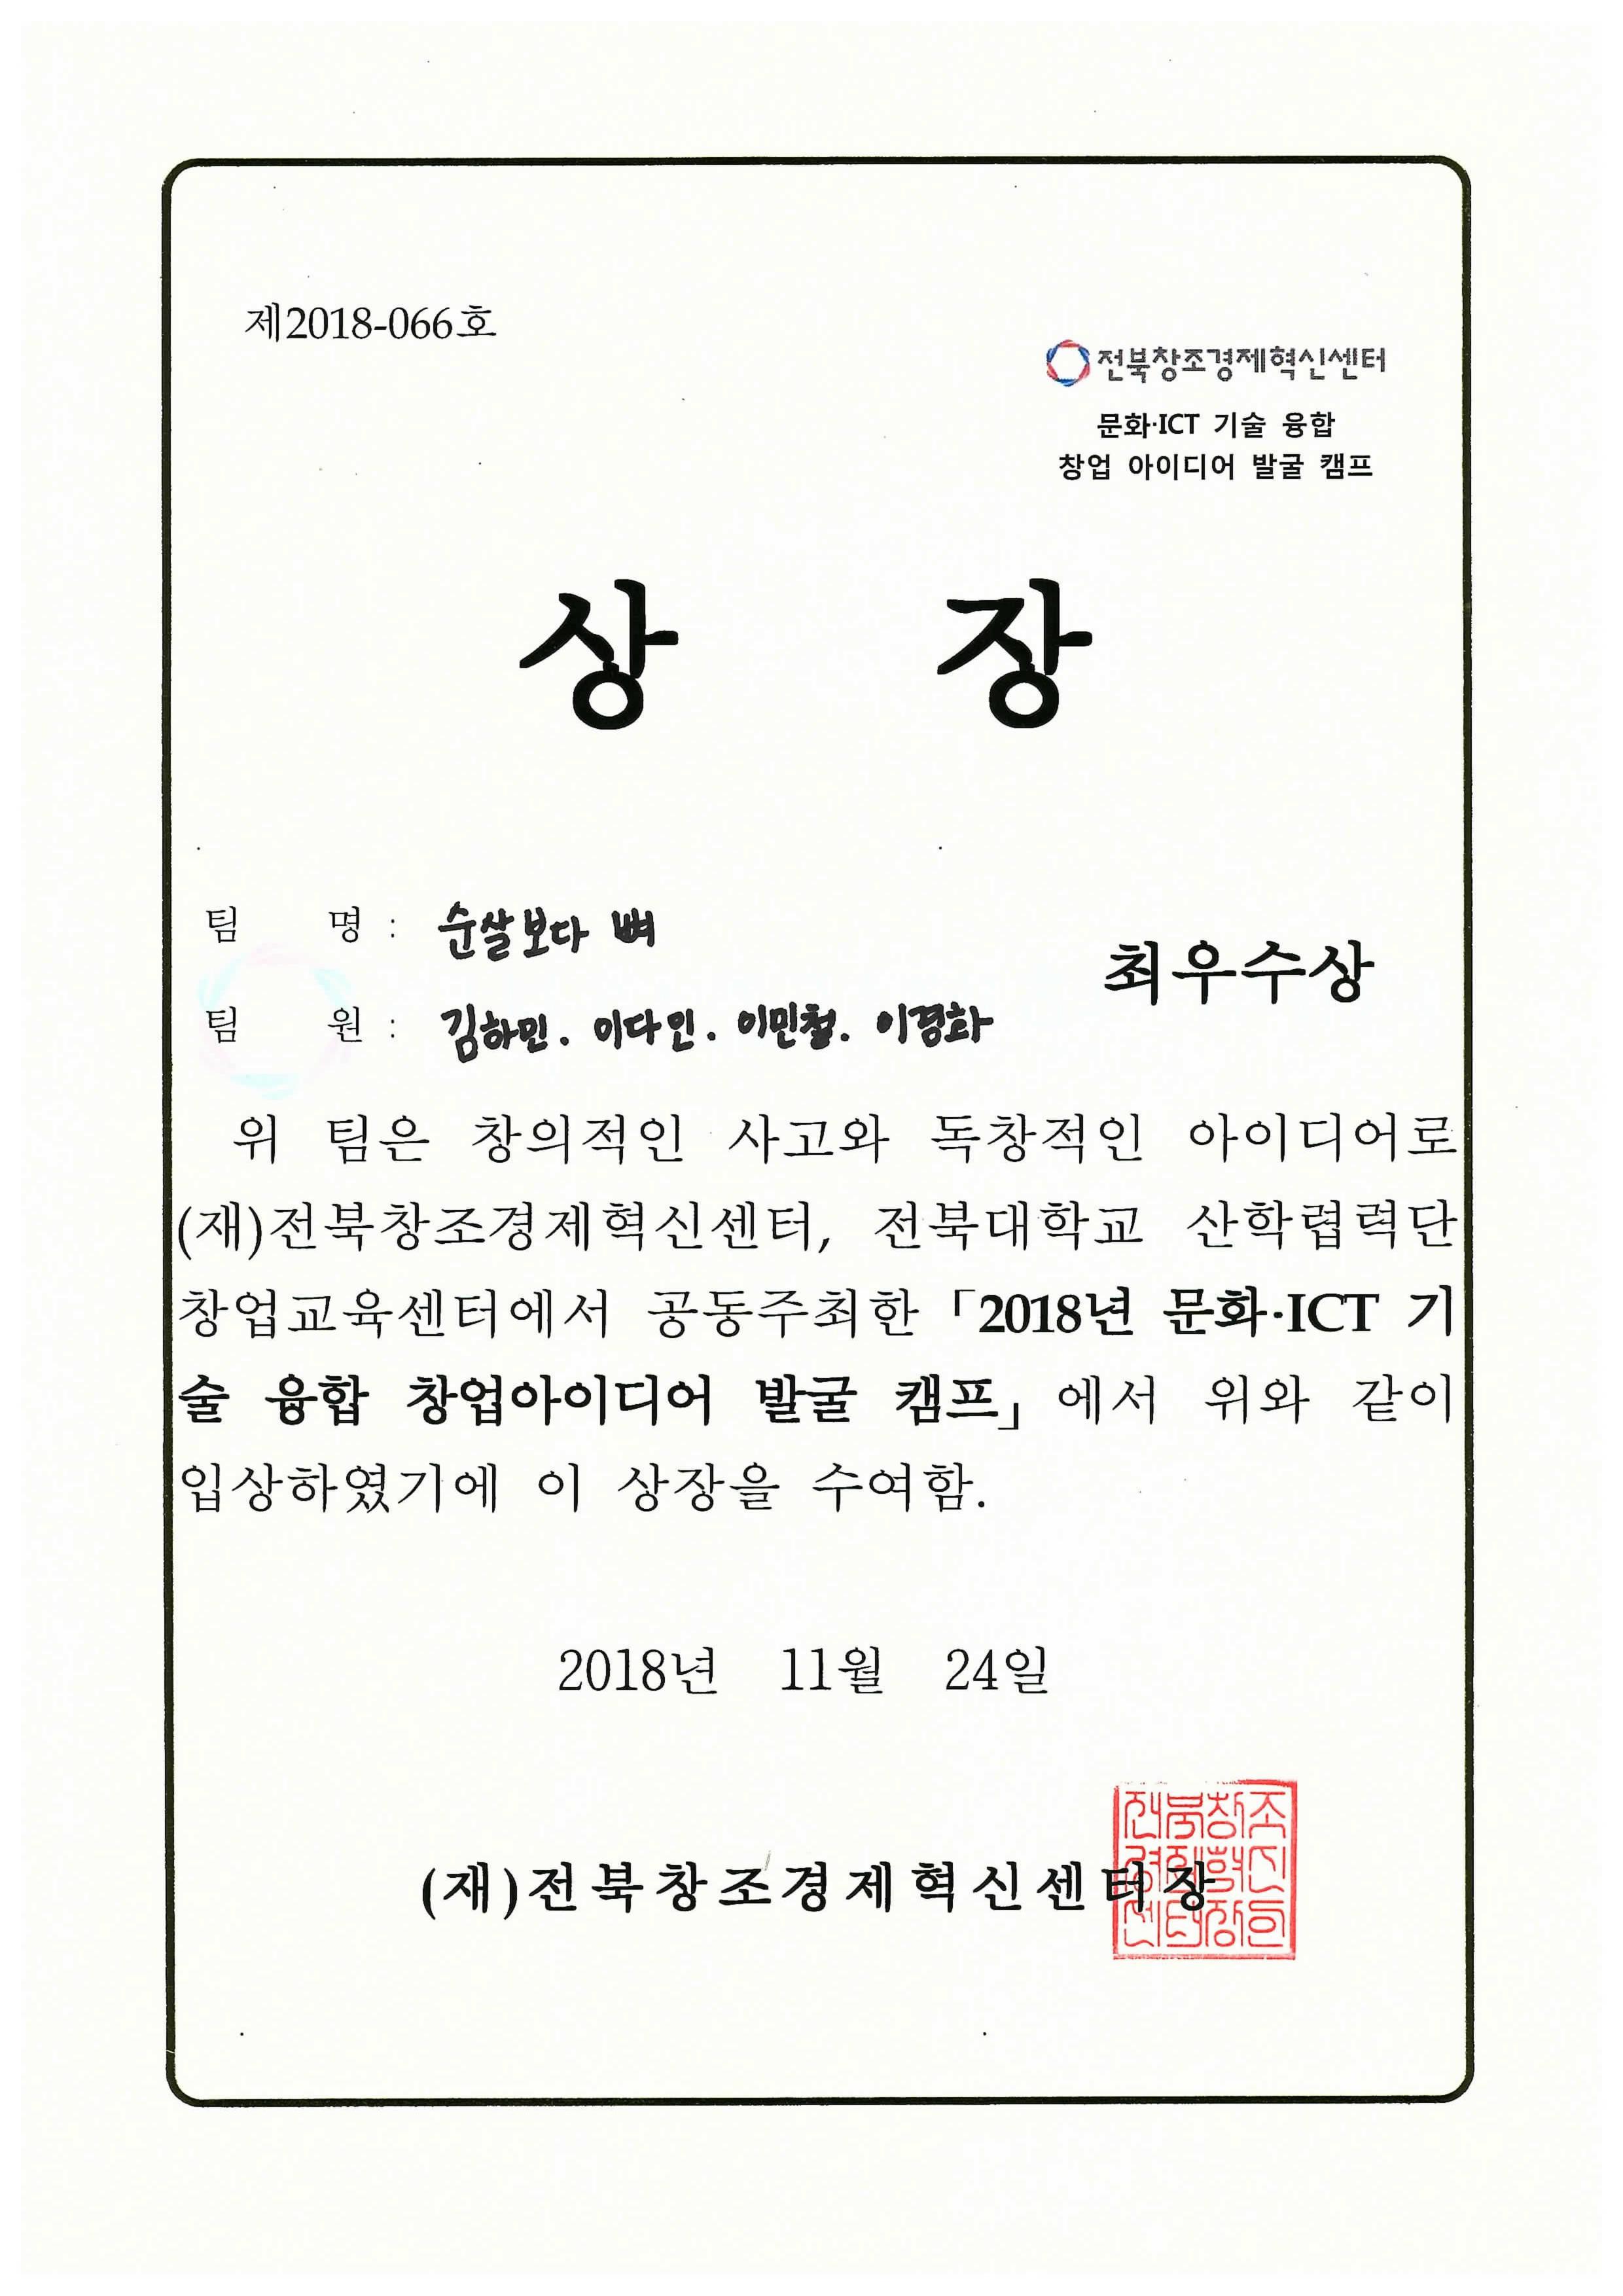 제2018-066호
전북창조경제혁신센터
문화·ICT 기술 융합
창업 아이디어 발굴 캠프
상 장
팀 명 : 순살보다 뼈
최우수상
팀 원 : 김하민. 이다인. 이민철. 이경화
위 팀은 창의적인 사고와 독창적인 아이디어로
(재)전북창조경제혁신센터, 전북대학교 산학렵력단
창업교육센터에서 공동주최한 「2018년 문화·ICT 기
술 융합 창업아이디어 발굴 캠프」에서 위와 같이
입상하였기에 이 상장을 수여함.
2018년 11월 24일
(재)전북창조경제혁신센터장
전북창조
경제혁신
센터장인